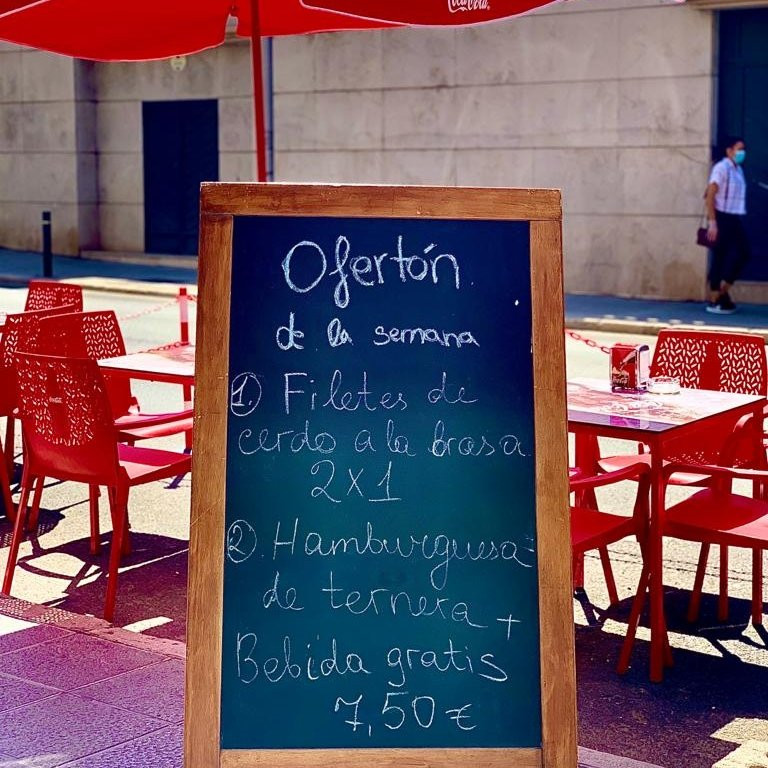 Coca-Cola
Ofertón
de la semana
1. Filetes de
cerdo a la brasa
2x1
2. Hamburguesa
de ternera +
Bebida gratis
7,50 €